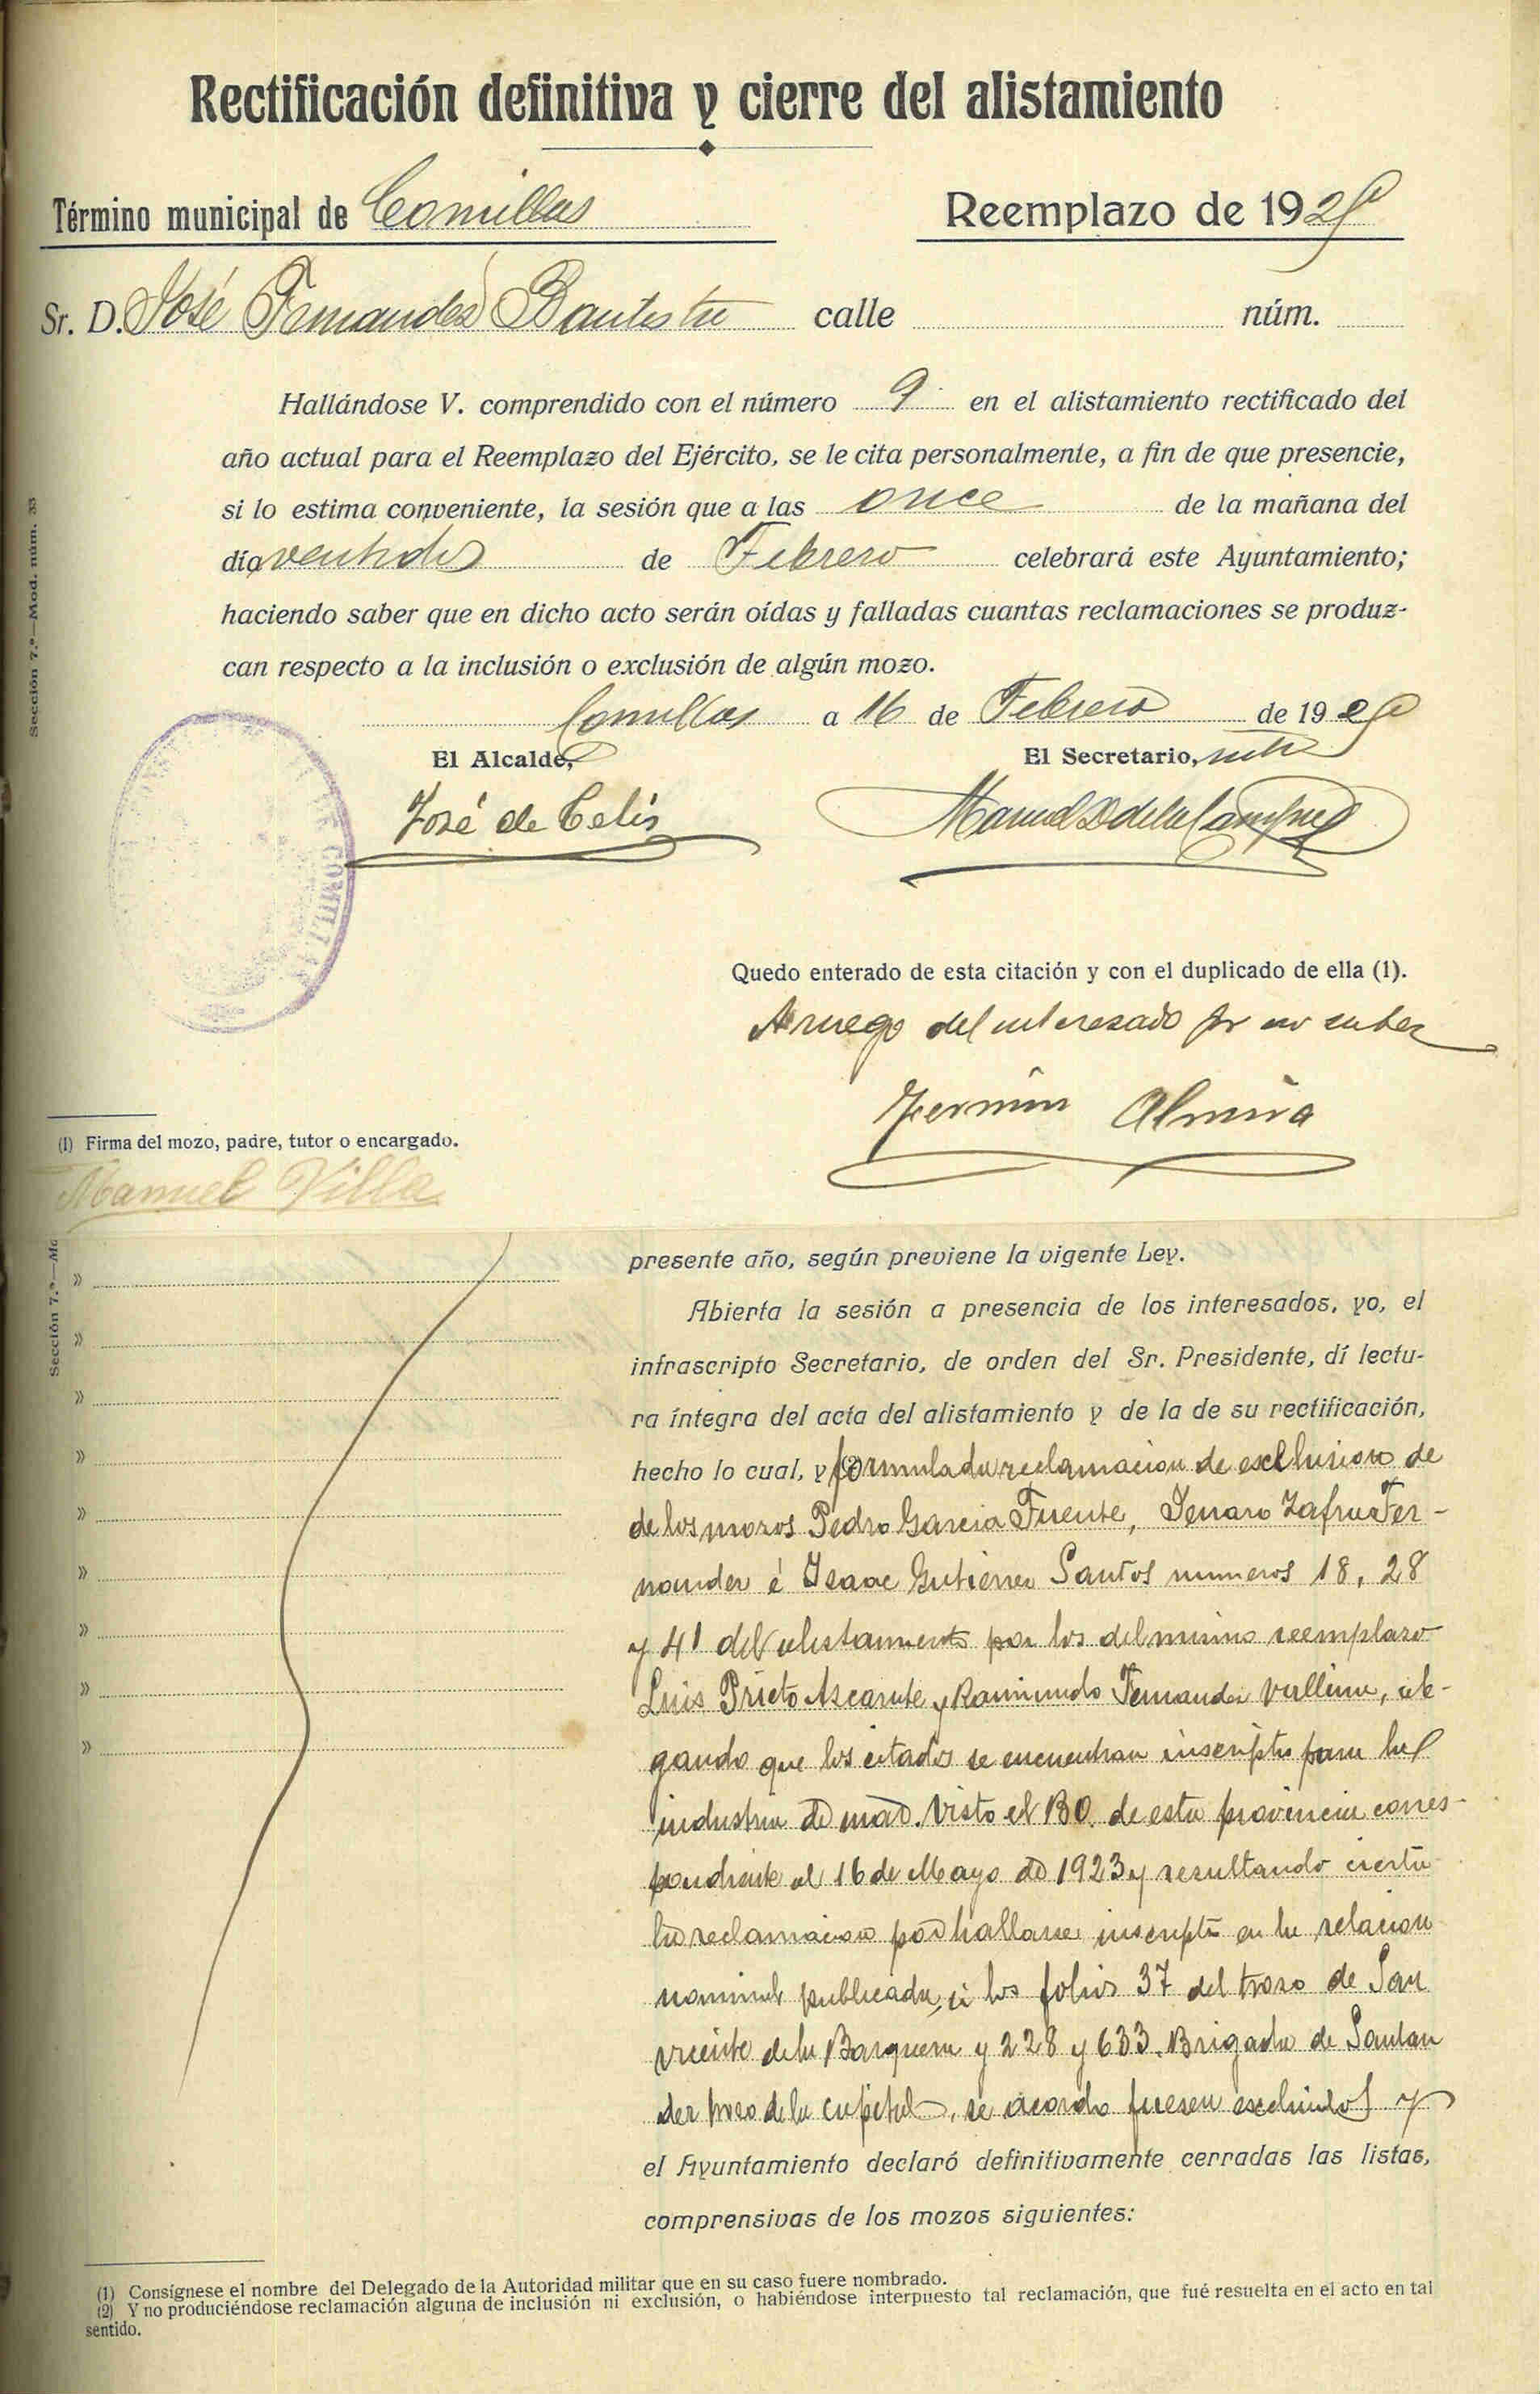 Rectificación definitiva y cierre del alistamiento
Término municipal de Comillas
Reemplazo de 192
Sr. D. José Fernandez Bautista calle núm.
Hallándose V. comprendido con el número 9 en el alistamiento rectificado del
año actual para el Reemplazo del Ejército, se le cita personalmente, a fin de que presencie,
si lo estima conveniente, la sesión que a las once de la mañana del
día ventidos de Febrero celebrará este Ayuntamiento;
haciendo saber que en dicho acto serán oídas y falladas cuantas reclamaciones se produz-
can respecto a la inclusión o exclusión de algún mozo.
Comillas a 16 de Febrero de 192
El Alcalde,
El Secretario,
José de Celis
Manuel D de la Campa
Quedo enterado de esta citación y con el duplicado de ella (1).
A ruego del interesado por no saber
Fermin
(1) Firma del mozo, padre, tutor o encargado.
Manuel Villa
Sección 7.ª—Mod. núm. 33
Sección 7.ª—Mo
»
»
»
»
»
»
»
»
»
presente año, según previene la vigente Ley.
Abierta la sesión a presencia de los interesados, yo, el
infrascripto Secretario, de orden del Sr. Presidente, dí lectu-
ra íntegra del acta del alistamiento y de la de su rectificación,
hecho lo cual, y (2) formulada reclamacion de exclusion de
de los mozos Pedro Garcia Fuente, Jenaro Zafra Fer-
nandez é Isaac Gutierrez Santos numeros 18, 28
y 41 del alistamiento por los del mismo reemplazo
Luis Prieto Ascarate y Raimundo Fernandez Vallina, ale-
gando que los citados se encuentran inscriptos para la
industria de mar. Visto el BO. de esta provincia corres-
pondiente al 16 de Mayo de 1923 y resultando cierta
la reclamacion por hallarse inscriptos en la relacion
nominal publicada, a los folios 37 del trozo de San
Vicente de la Barquera y 228 y 633. Brigada de Santan
der trozo de la capital, se acordo fuesen excluidos y
el Ayuntamiento declaró definitivamente cerradas las listas,
comprensivas de los mozos siguientes:
(1) Consígnese el nombre del Delegado de la Autoridad militar que en su caso fuere nombrado.
(2) Y no produciéndose reclamación alguna de inclusión ni exclusión, o habiéndose interpuesto tal reclamación, que fué resuelta en el acto en tal
sentido.